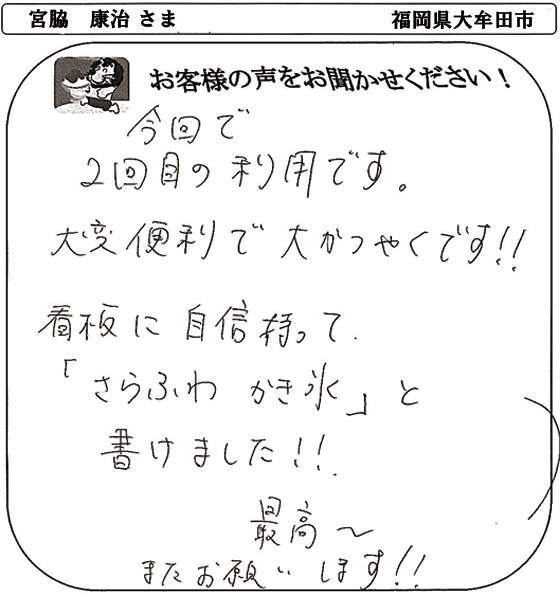 宮脇　康治 さま　福岡県大牟田市
お客様の声をお聞かせください！
今回で
2回目の利用です。
大変便利で大かつやくです!!
看板に自信持って
「さらふわ　かき氷」と
書けました!!
最高〜
またお願いします!!